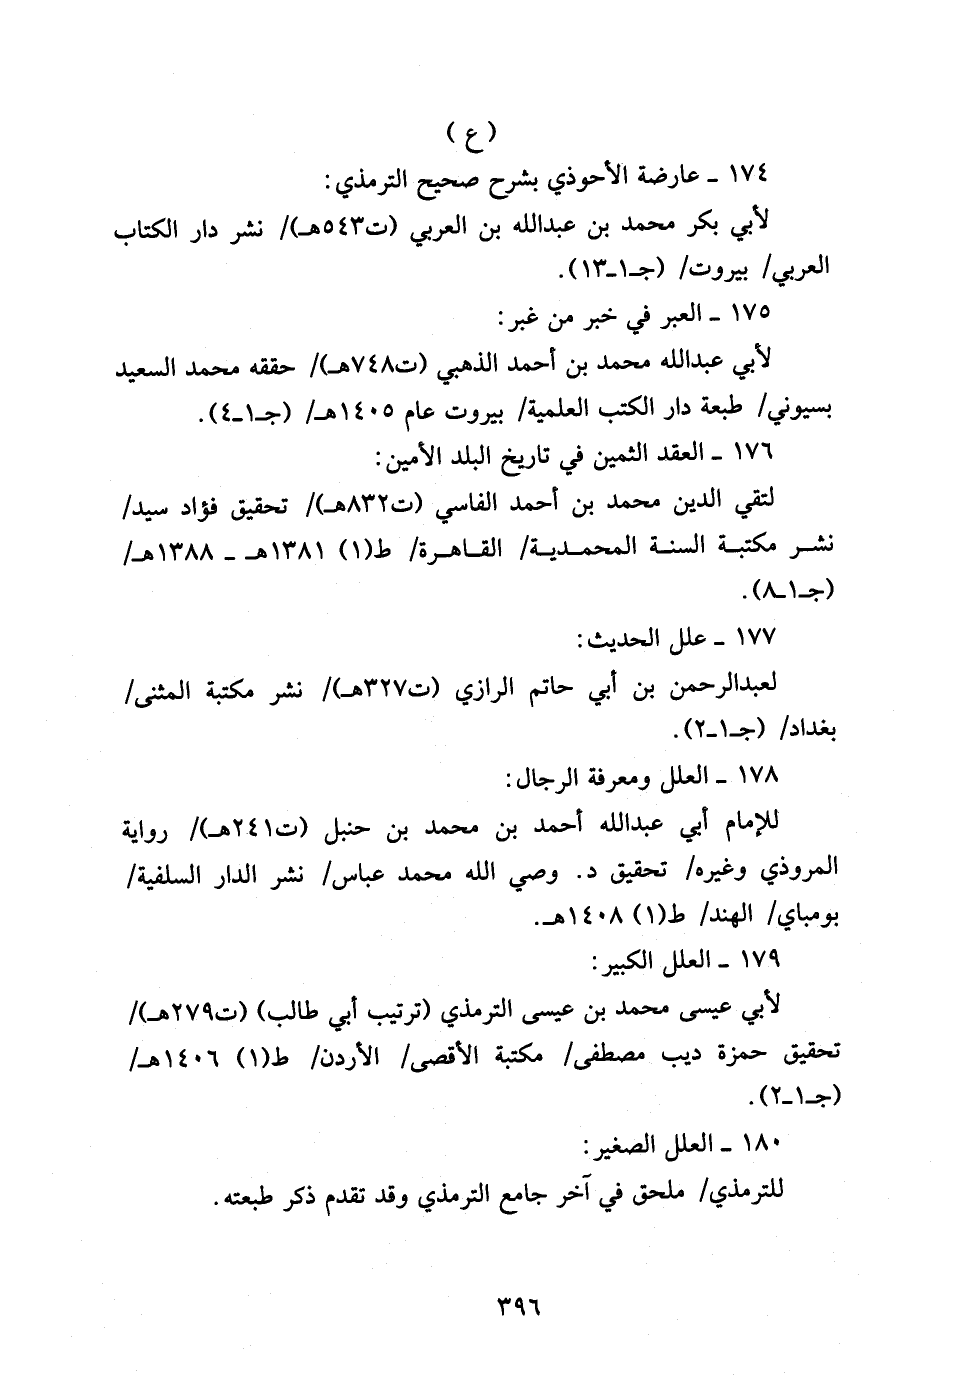 (ع)
١٧٤ ـ عارضة الأحوذي بشرح صحيح الترمذي:
لأبي بكر محمد بن عبدالله بن العربي (ت٥٤٣هـ)/ نشر دار الكتاب
العربي/ بيروت/ (جـ١ـ١٣).
١٧٥ ـ العبر في خبر من غبر:
لأبي عبدالله محمد بن أحمد الذهبي (ت٧٤٨هـ)/ حققه محمد السعيد
بسيوني/ طبعة دار الكتب العلمية/ بيروت عام ١٤٠٥هـ/ (جـ١ـ٤).
١٧٦ ـ العقد الثمين في تاريخ البلد الأمين:
لتقي الدين محمد بن أحمد الفاسي (ت٨٣٢هـ)/ تحقيق فؤاد سيد/
نشر مكتبة السنة المحمدية/ القاهرة/ ط(١) ١٣٨١هـ ـ ١٣٨٨هـ/
(جـ١ـ٨).
١٧٧ ـ علل الحديث:
لعبدالرحمن بن أبي حاتم الرازي (ت٣٢٧هـ)/ نشر مكتبة المثنى/
بغداد/ (جـ١ـ٢).
١٧٨ ـ العلل ومعرفة الرجال:
للإمام أبي عبدالله أحمد بن محمد بن حنبل (ت٢٤١هـ)/ رواية
المروذي وغيره/ تحقيق د. وصي الله محمد عباس/ نشر الدار السلفية/
بومباي/ الهند/ ط(١) ١٤٠٨هـ.
١٧٩ ـ العلل الكبير:
لأبي عيسى محمد بن عيسى الترمذي (ترتيب أبي طالب) (ت٢٧٩هـ)/
تحقيق حمزة ديب مصطفى/ مكتبة الأقصى/ الأردن/ ط(١) ١٤٠٦هـ/
(جـ١ـ٢).
١٨٠ ـ العلل الصغير:
للترمذي/ ملحق في آخر جامع الترمذي وقد تقدم ذكر طبعته.
٣٩٦